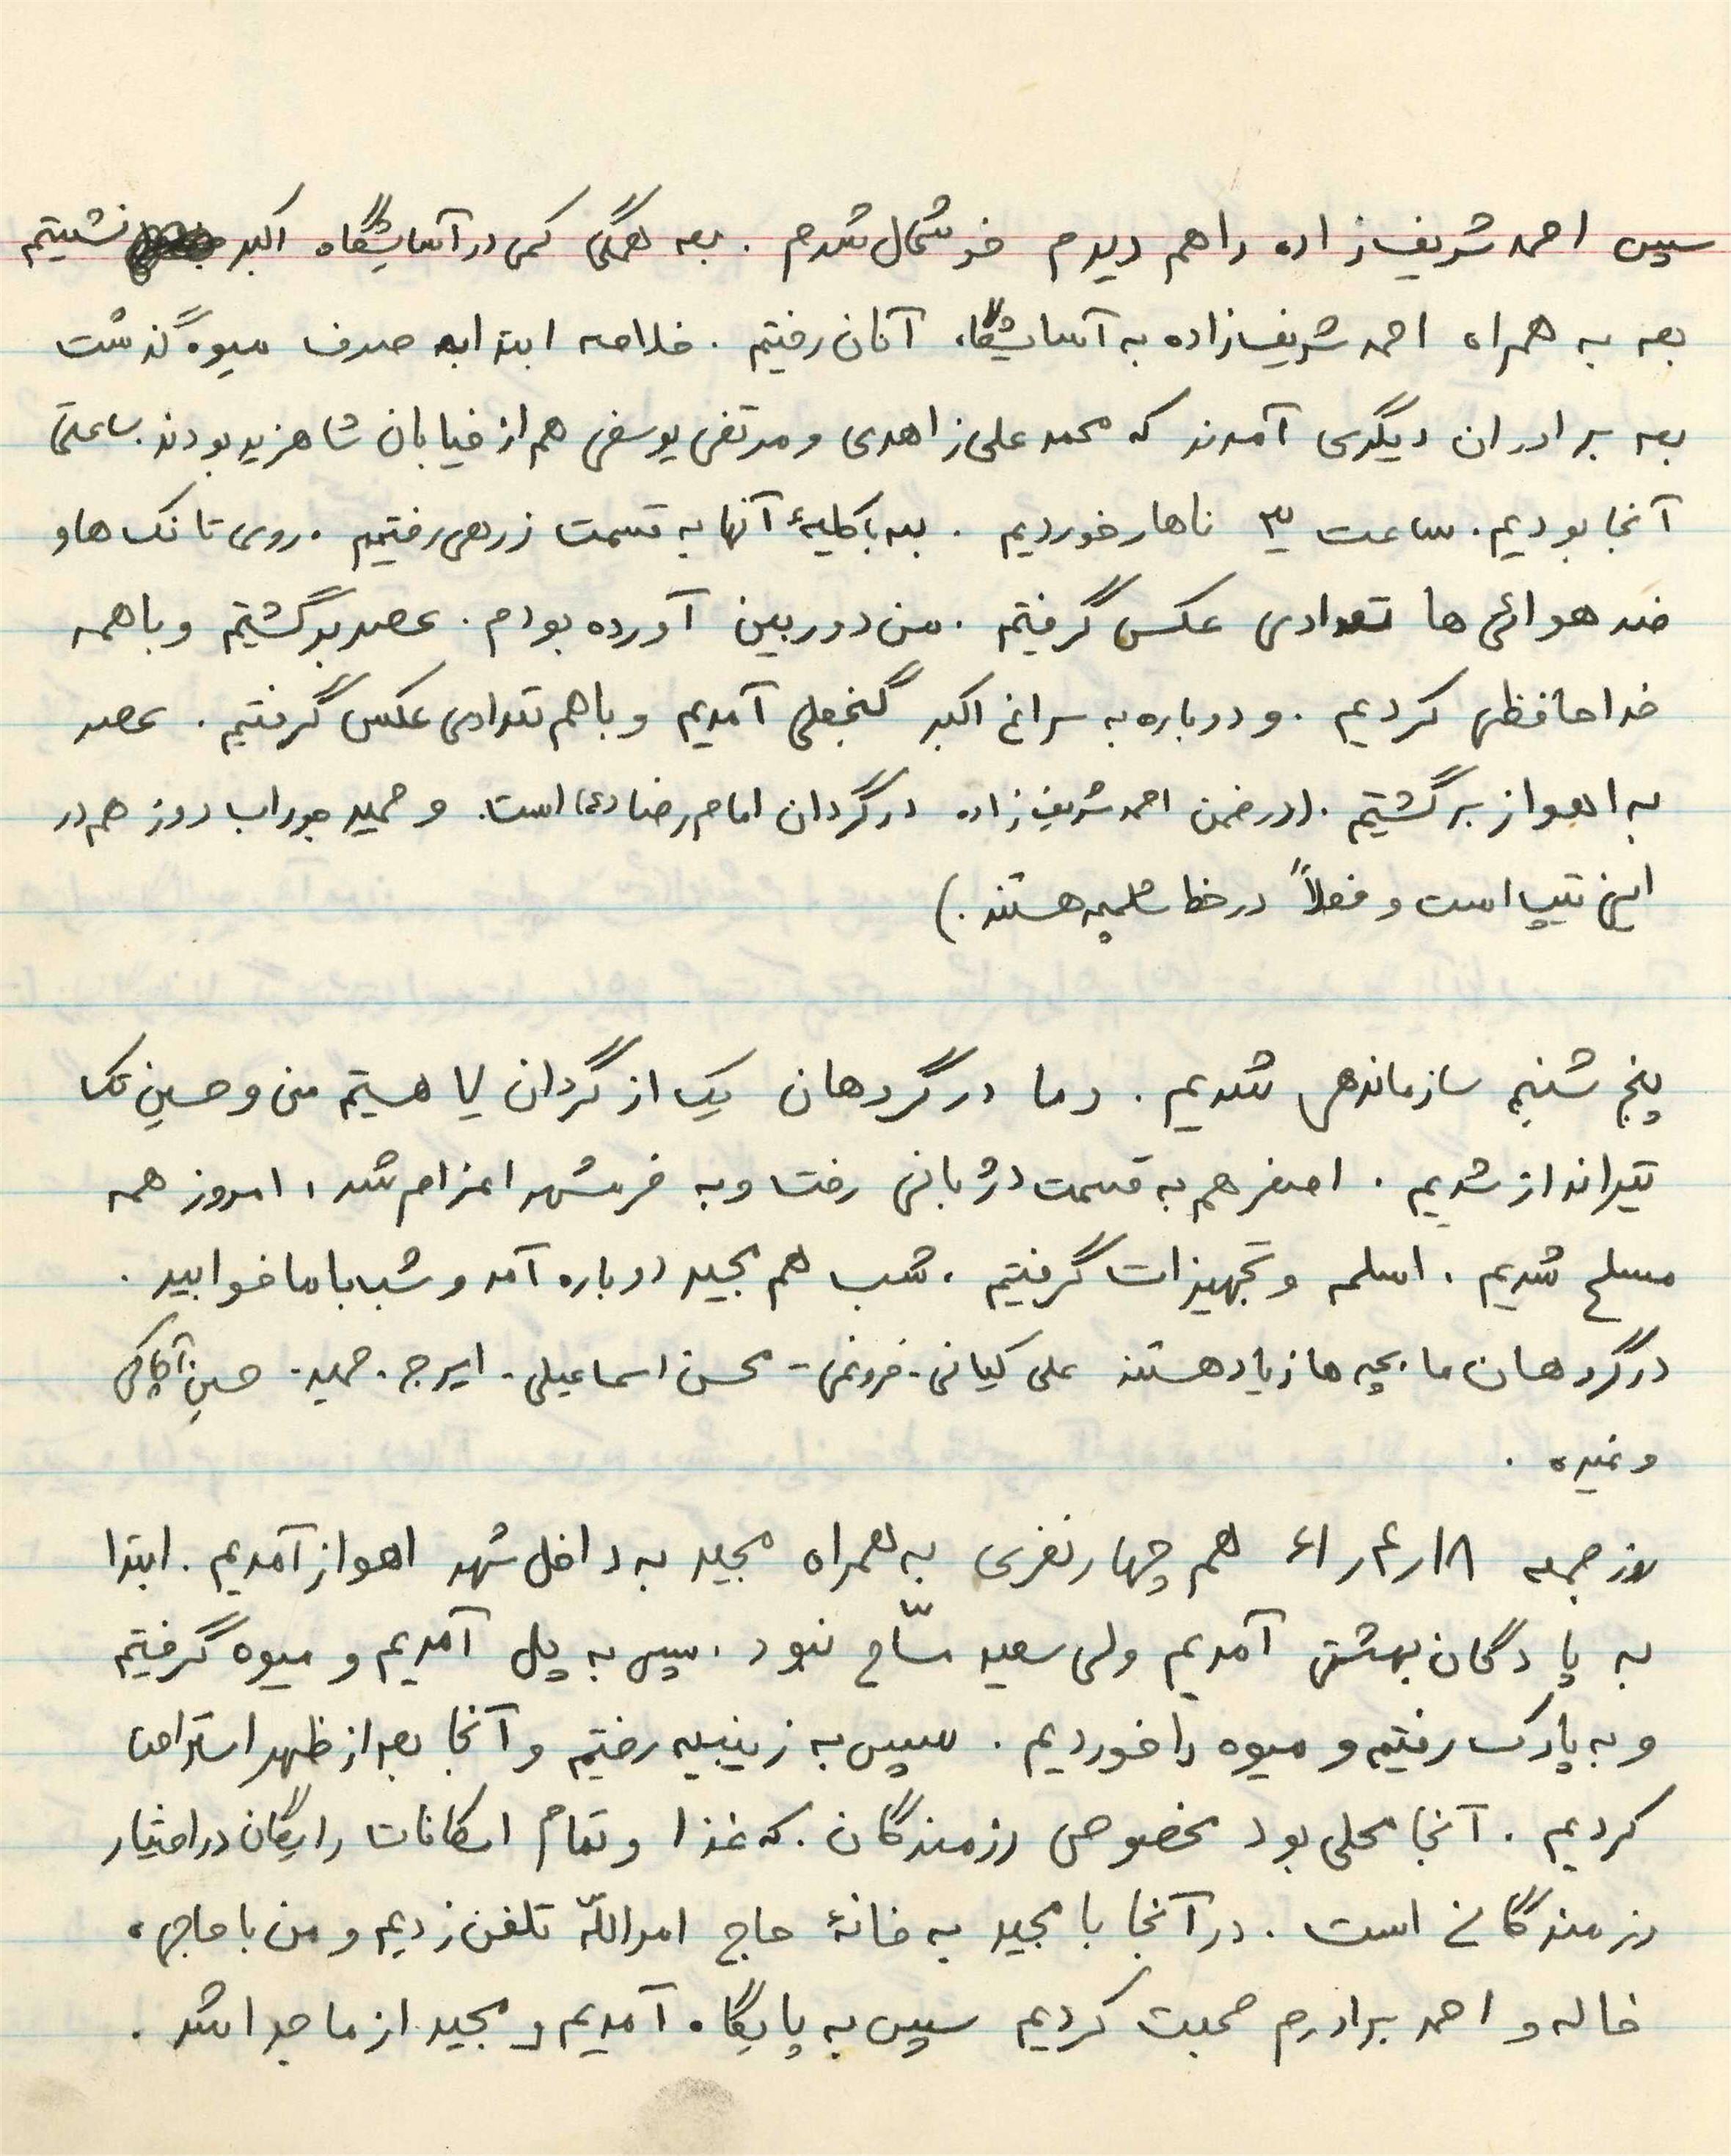 سپس احمد شریف‌زاده را هم دیدم خوشحال شدم . بعد همگی کمی در آسایشگاه اکبر نشستیم
بعد به همراه احمد شریف‌زاده به آسایشگاه آنان رفتیم . خلاصه ابتدا به صرف میوه گذشت
بعد برادران دیگری آمدند که محمد علی زاهدی و مرتضی یوسفی هم از خیابان شاهزید بودند. ساعتی
آنجا بودیم. ساعت ۳ ناهار خوردیم . بعد با کلیهٔ آنها به قسمت زرهی رفتیم . روی تانک ها و
ضد هوائی ها تعدادی عکس گرفتیم . من دوربین آورده بودم . عصر برگشتیم و با همه
خداحافظی کردیم . و دوباره به سراغ اکبر گنجعلی آمدیم و با هم تعدادی عکس گرفتیم . عصر
به اهواز برگشتیم . (در ضمن احمد شریف‌زاده در گردان امام رضا (ع) است. و حمید جوراب دوز هم در
این تیپ است و فعلاً در خط شلمچه هستند .)
پنج شنبه سازماندهی شدیم . و ما در گردهان یک از گردان لیا هستیم من و حسین تک
تیرانداز شدیم . اصغر هم به قسمت دژبانی رفت و به خرمشهر اعزام شد ، امروز همه
مسلح شدیم . اسلحه و تجهیزات گرفتیم . شب هم مجید دوباره آمد و شب با ما خوابید .
در گردهان ما بچه ها زیاد هستند علی کیانی - فروغی - محسن اسماعیلی - ایرج - حمید - حسین
و غیره .
روز جمعه ۱۸ر۴ر۶۱ هم چهار نفری به همراه مجید به داخل شهر اهواز آمدیم . ابتدا
به پادگان بهشتی آمدیم ولی سعید مسّاح نبود . سپس به پل آمدیم و میوه گرفتیم
و به پارک رفتیم و میوه را خوردیم . سپس به زینبیه رفتیم و آنجا بعد از ظهر استراحت
کردیم . آنجا محلی بود مخصوص رزمندگان . که غذا و تمام امکانات رایگان در اختیار
رزمندگانی است . در آنجا با مجید به خانهٔ حاج امراللّه تلفن زدیم و من با حاجی ،
خاله و احمد برادرم صحبت کردیم سپس به پایگاه آمدیم و مجید از ما جدا شد .